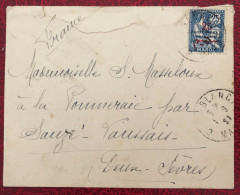 Braine
Mademoiselle S. Masseloux
à la Pommeraie par
Sauzé-Vaussais
Deux-Sèvres